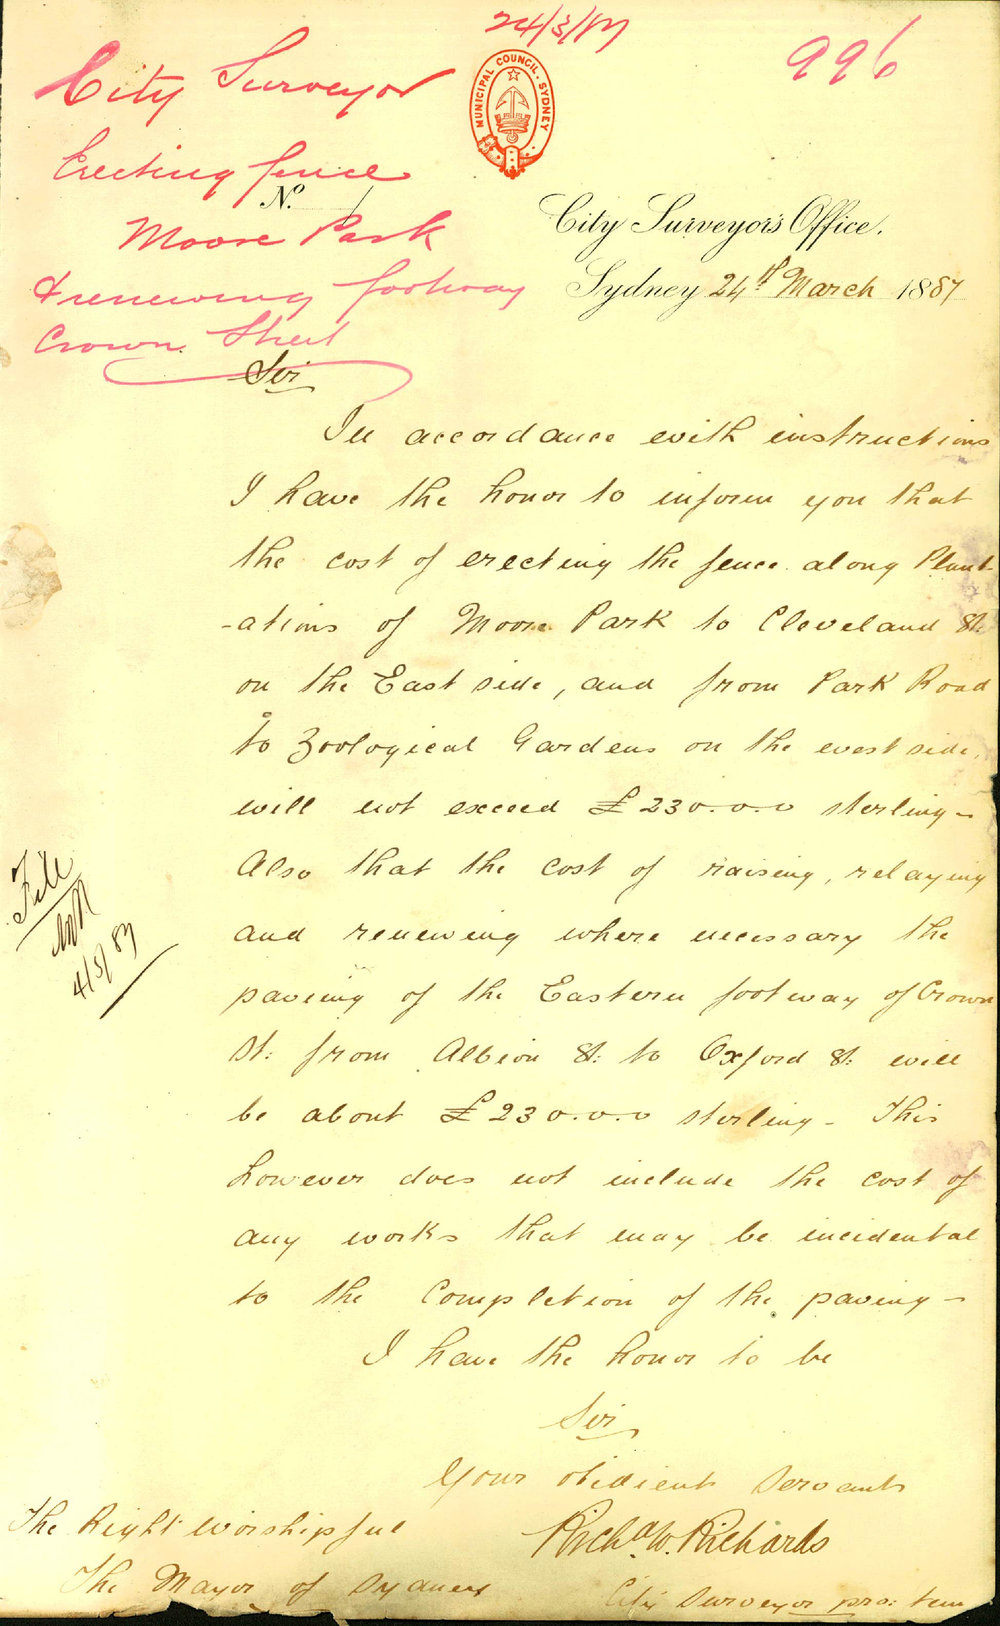 24/3/87
996
City Surveyor
Erecting fence
Moore Park
& renewing footway
Crown Street
MUNICIPAL COUNCIL. SYDNEY
No.
City Surveyor's Office.
Sydney 24th March 1887
Sir
In accordance with instructions
I have the honor to inform you that
the cost of erecting the fence along Plant-
-ations of Moore Park to Cleveland St:
on the East side, and from Park Road
to Zoological Gardens on the west side,
will not exceed £230.0.0 sterling-
Also that the cost of raising, relaying
and renewing where necessary the
paving of the Eastern footway of Crown
St: from Albion St: to Oxford St: will
be about £230.0.0 sterling - This
however does not include the cost of
any works that may be incidental
to the completion of the paving -
I have the honor to be
Sir
Your obedient Servant
Richd. W. Richards
City Surveyor pro: tem
The Right Worshipful
The Mayor of Sydney
File
4/5/87